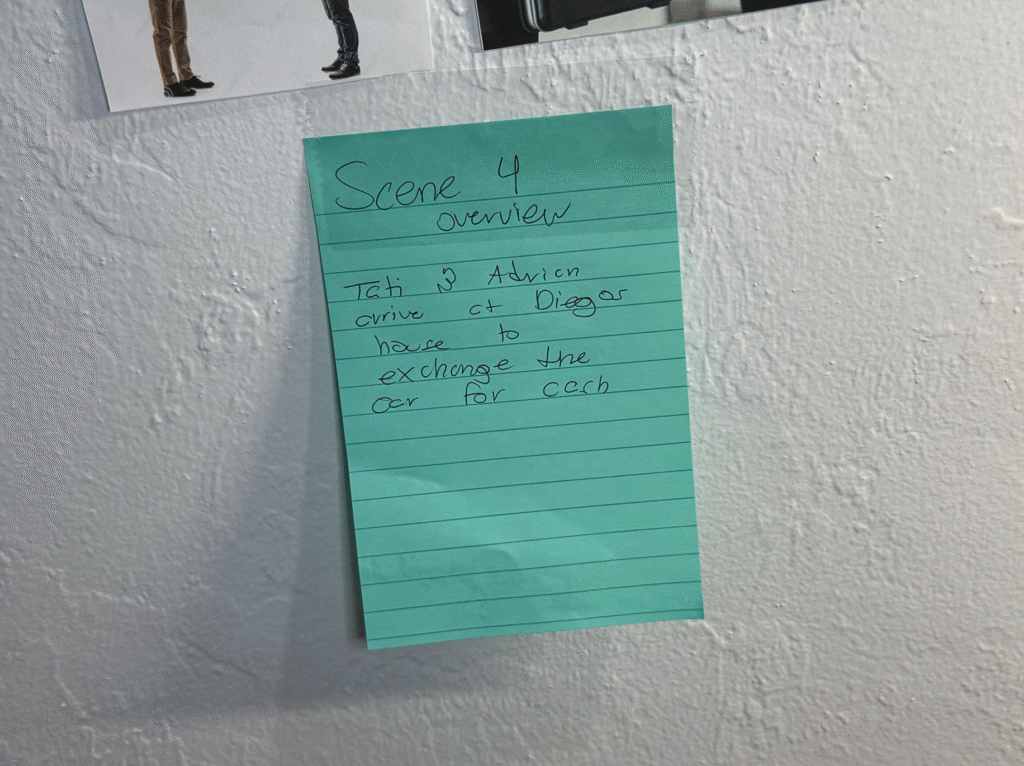 Scene 4
overview
Tati & Adrian
arrive at Diegos
house to
exchange the
car for cash